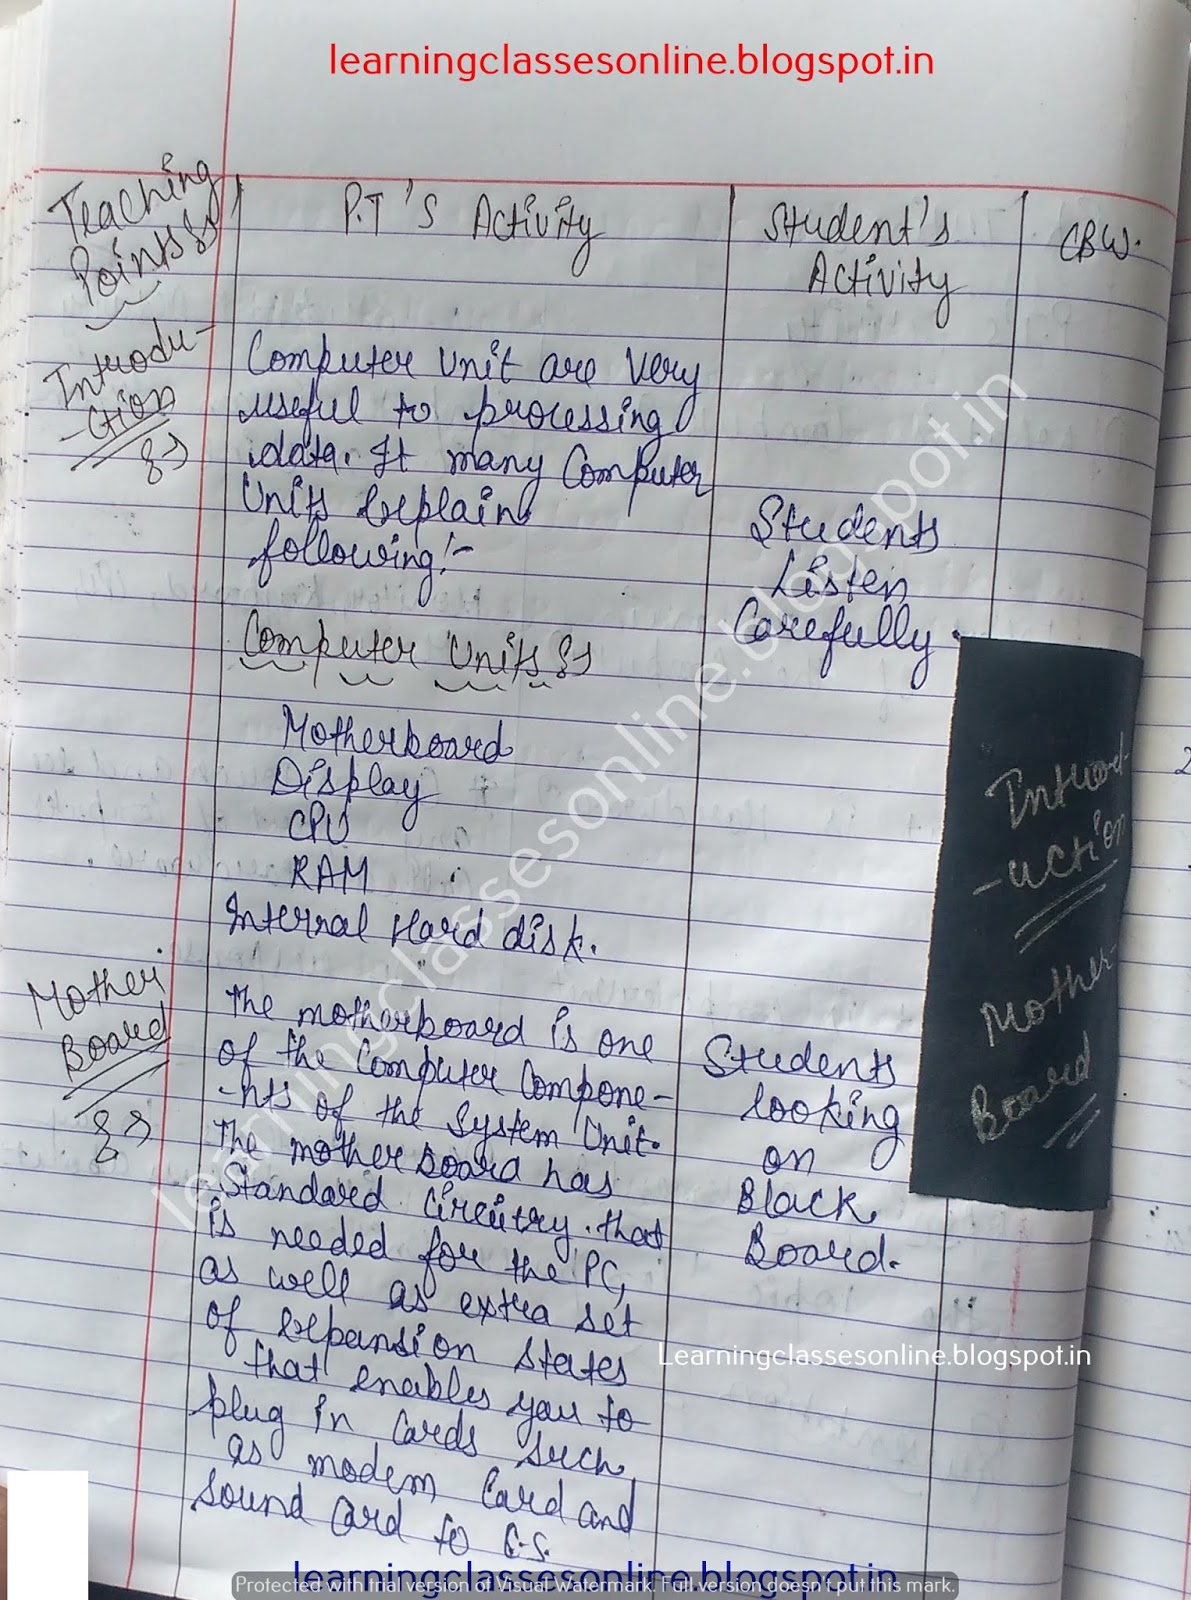 learningclassesonline.blogspot.in
Teaching
Points
P.T'S Activity
Student's
Activity
CBW.
Introdu-
-ction
Computer Unit are Very
useful to processing
data. It many Computer
Units Explain
following:-
Students
Listen
Carefully.
Computer Units
Motherboard
Display
CPU
RAM
Internal Hard disk.
Introd-
-uction
Mother-
Board
Mother
Board
The motherboard is one
of the Computer Compone-
-nts of the System Unit.
The motherboard has
Standard Circuitry that
is needed for the PC,
as well as extra set
of Expansion States
that enables you to
plug in Cards Such
as modem Card and
Sound Card to C.S.
Students
looking
on
Black
Board.
learningclassesonline.blogspot.in
Learningclassesonline.blogspot.in
learningclassesonline.blogspot.in
Protected with trial version of Visual Watermark. Full version doesn't put this mark.